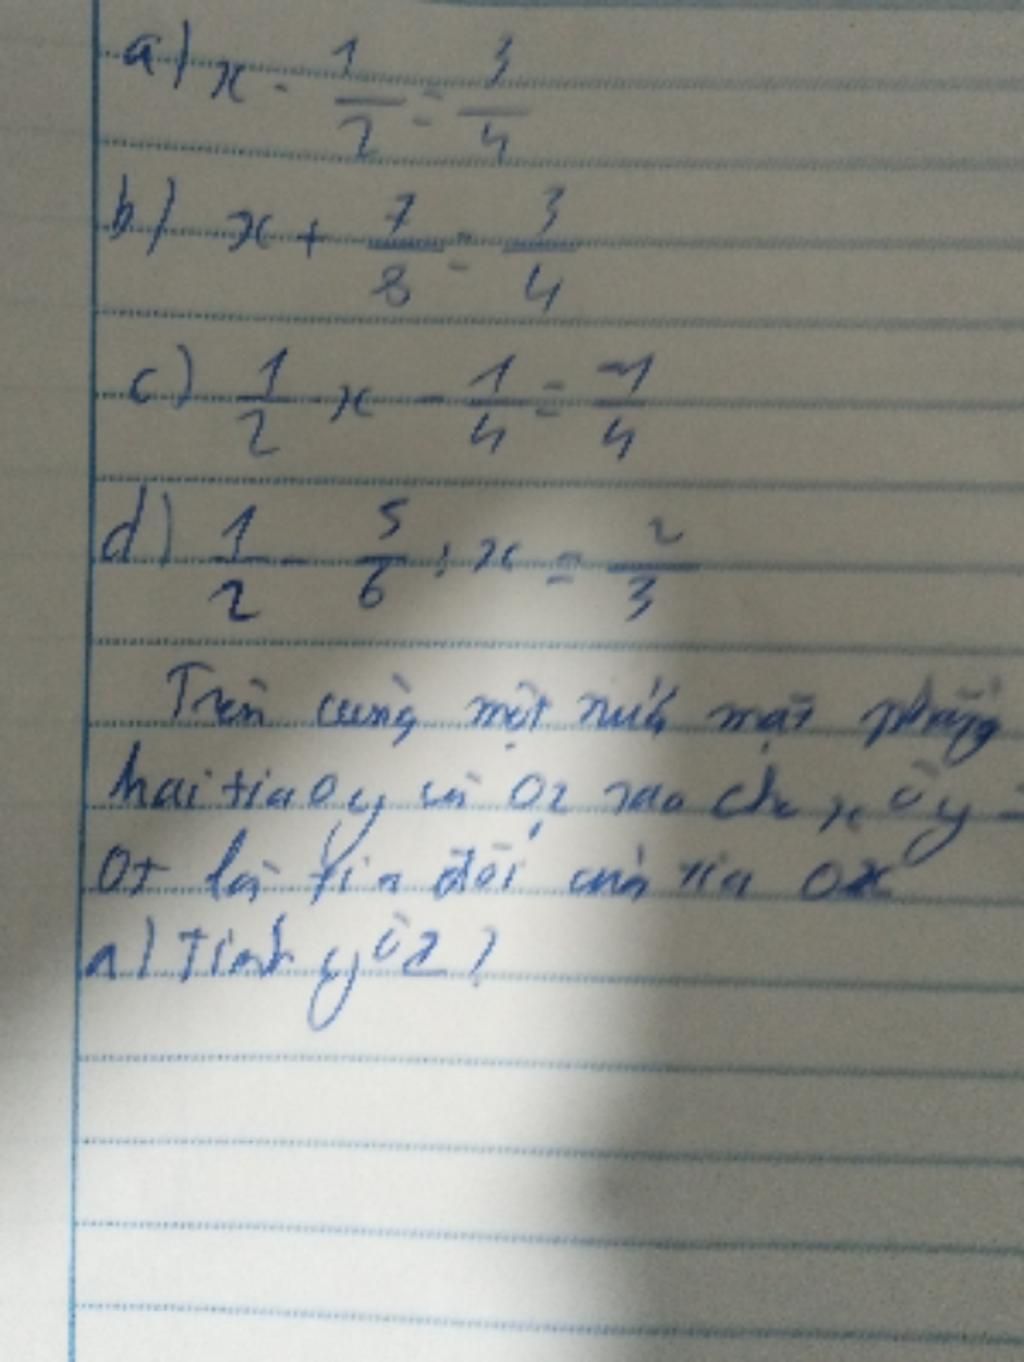 a) x - 1/2 = 3/4
b) x + 7/8 = 3/4
c) 1/2 x - 1/4 = -1/4
d) 1/2 - 5/6 : x = 2/3
Trên cùng một nửa mặt phẳng
hai tia Oy và Oz sao cho xÔy =
Ot là tia đối của tia Ox
a) Tính yÔz?